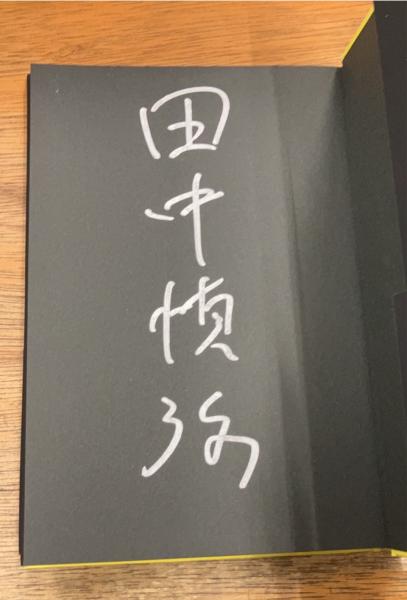 田中慎弥